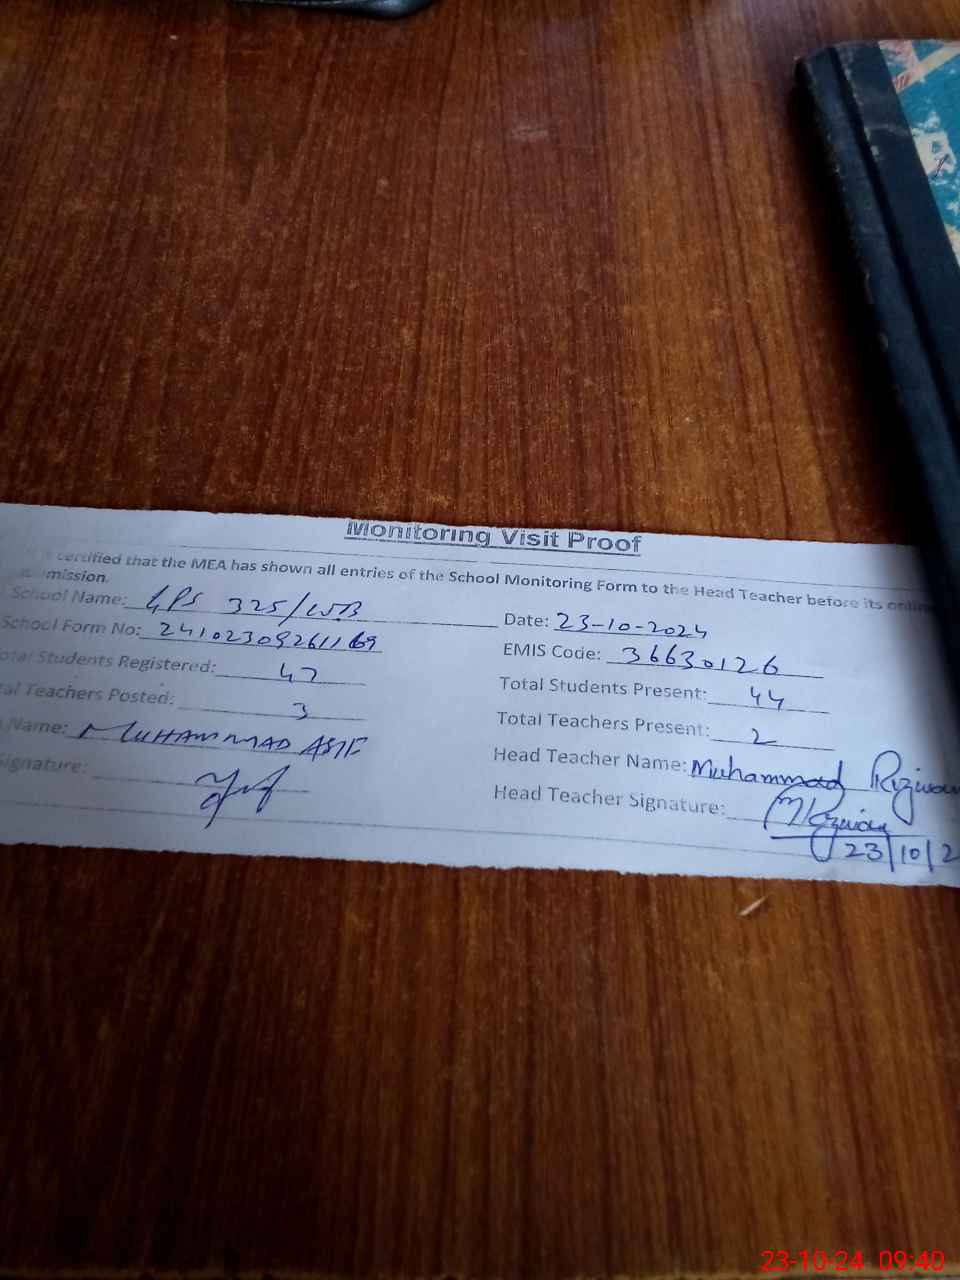 Monitoring Visit Proof
certified that the MEA has shown all entries of the School Monitoring Form to the Head Teacher before its online
mission.
School Name: GPS 325/WB
Date: 23-10-2024
School Form No:
EMIS Code: 36630126
otal Students Registered: 47
Total Students Present: 44
al Teachers Posted: 3
Total Teachers Present: 2
Name: MUHAMMAD ASIF
Head Teacher Name: Muhammad Rizwan
ignature:
Head Teacher Signature: MRizwan
23/10/2
23-10-24 09:40